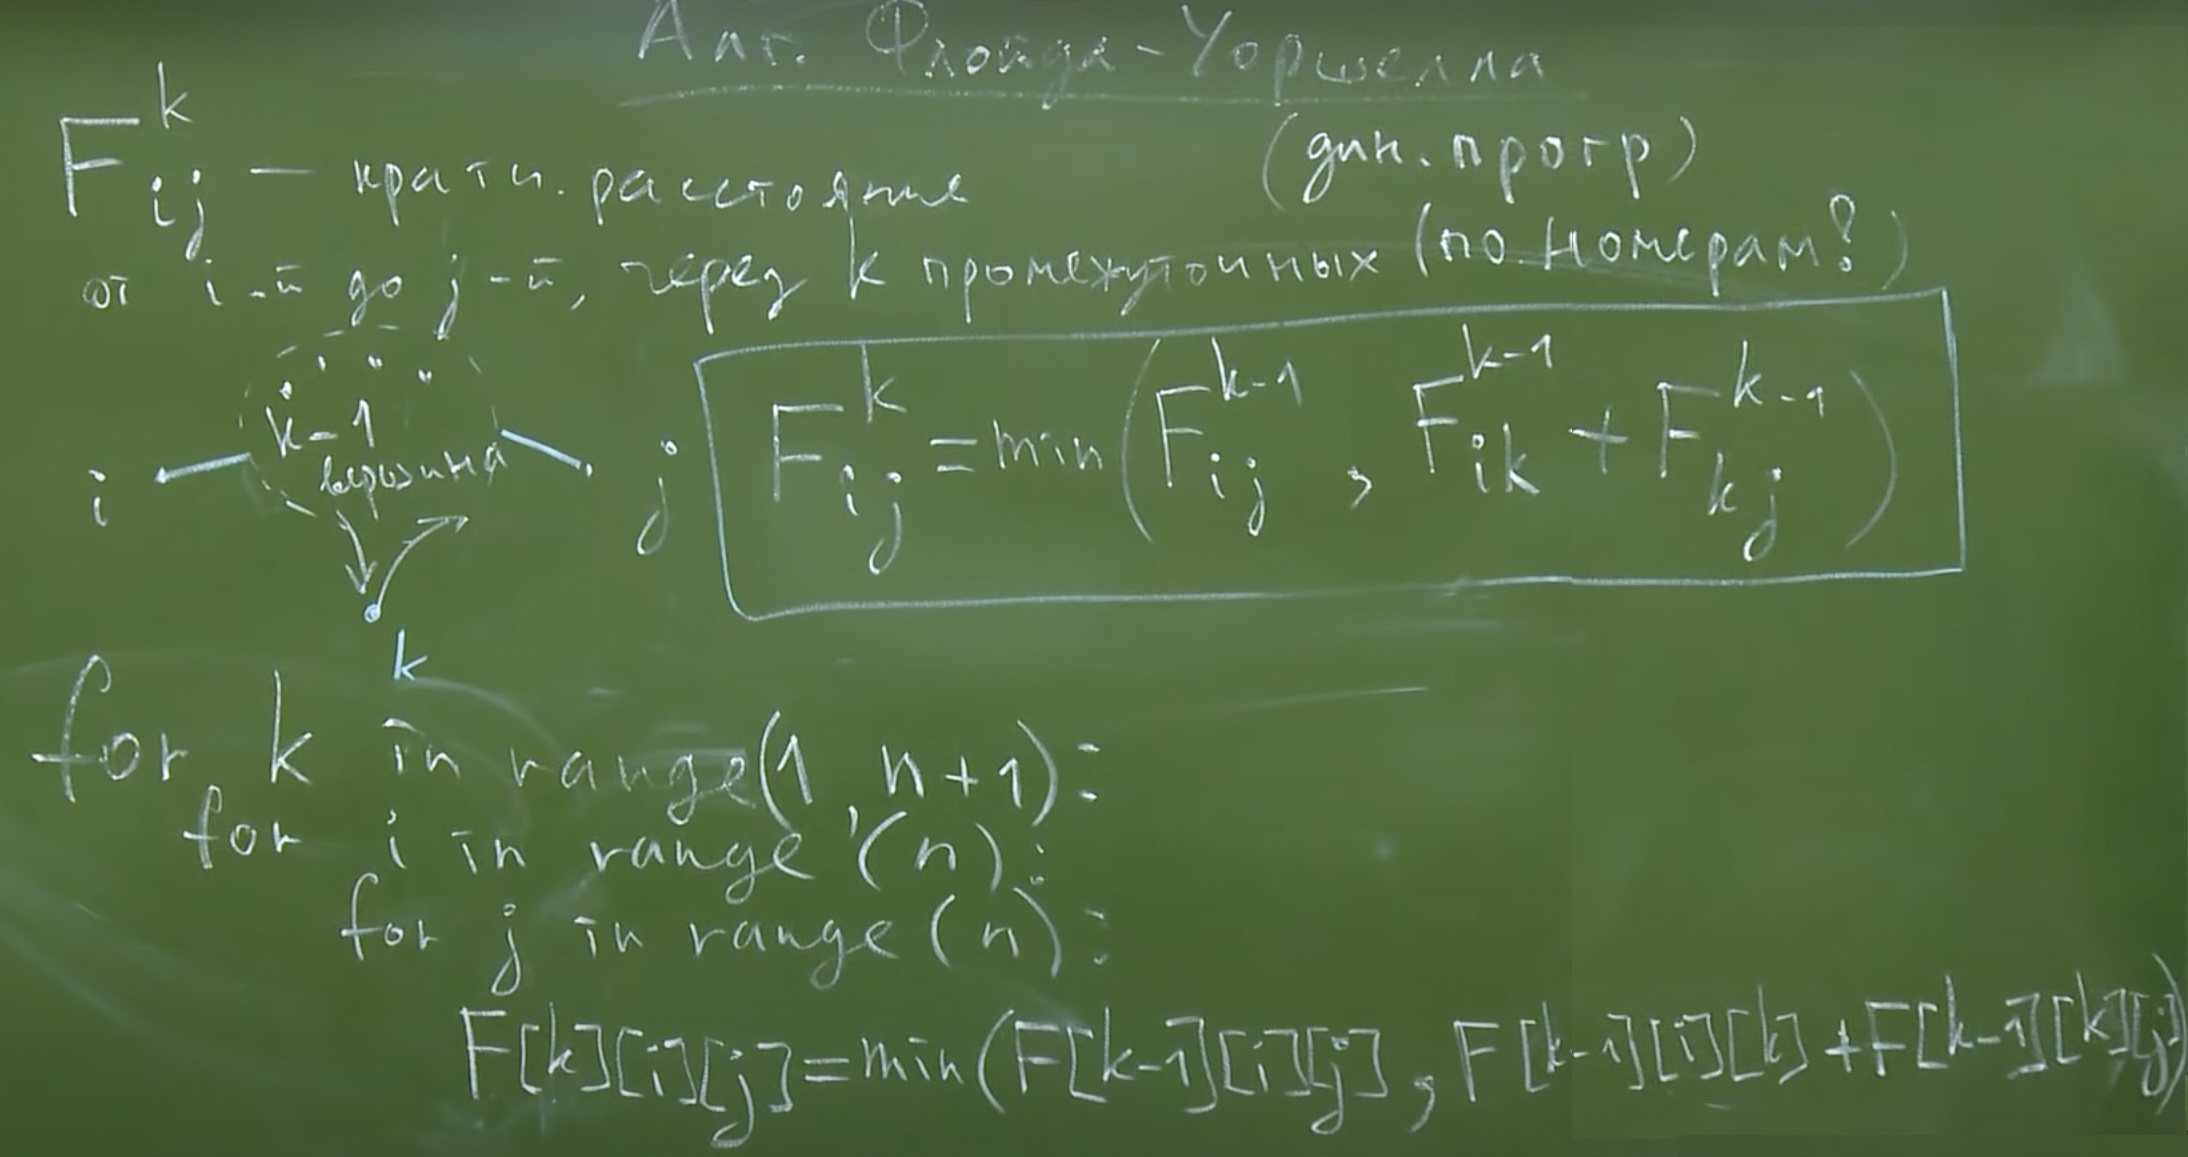 Алг. Флойда-Уоршелла
(дин. прогр)
F^k_ij — кратч. расстояние
от i-й до j-й, через k промежуточных (по номерам!)
k-1
вершина
i
j
k
F^k_ij = min(F^{k-1}_ij, F^{k-1}_ik + F^{k-1}_kj)
for k in range(1, n+1):
for i in range (n):
for j in range (n):
F[k][i][j]=min(F[k-1][i][j], F[k-1][i][k]+F[k-1][k][j])